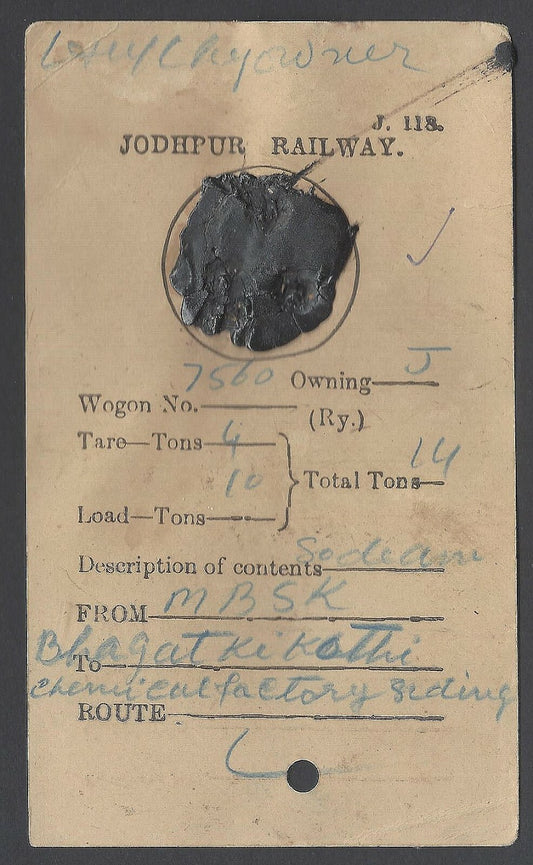 J. 118.
JODHPUR RAILWAY.
7560 Owning J
Wogon No. (Ry.)
Tare—Tons 4
10 Total Tons 14
Load—Tons
Description of contents
FROM MBSK
Bhagat ki kothi
To
chemical factory siding
ROUTE